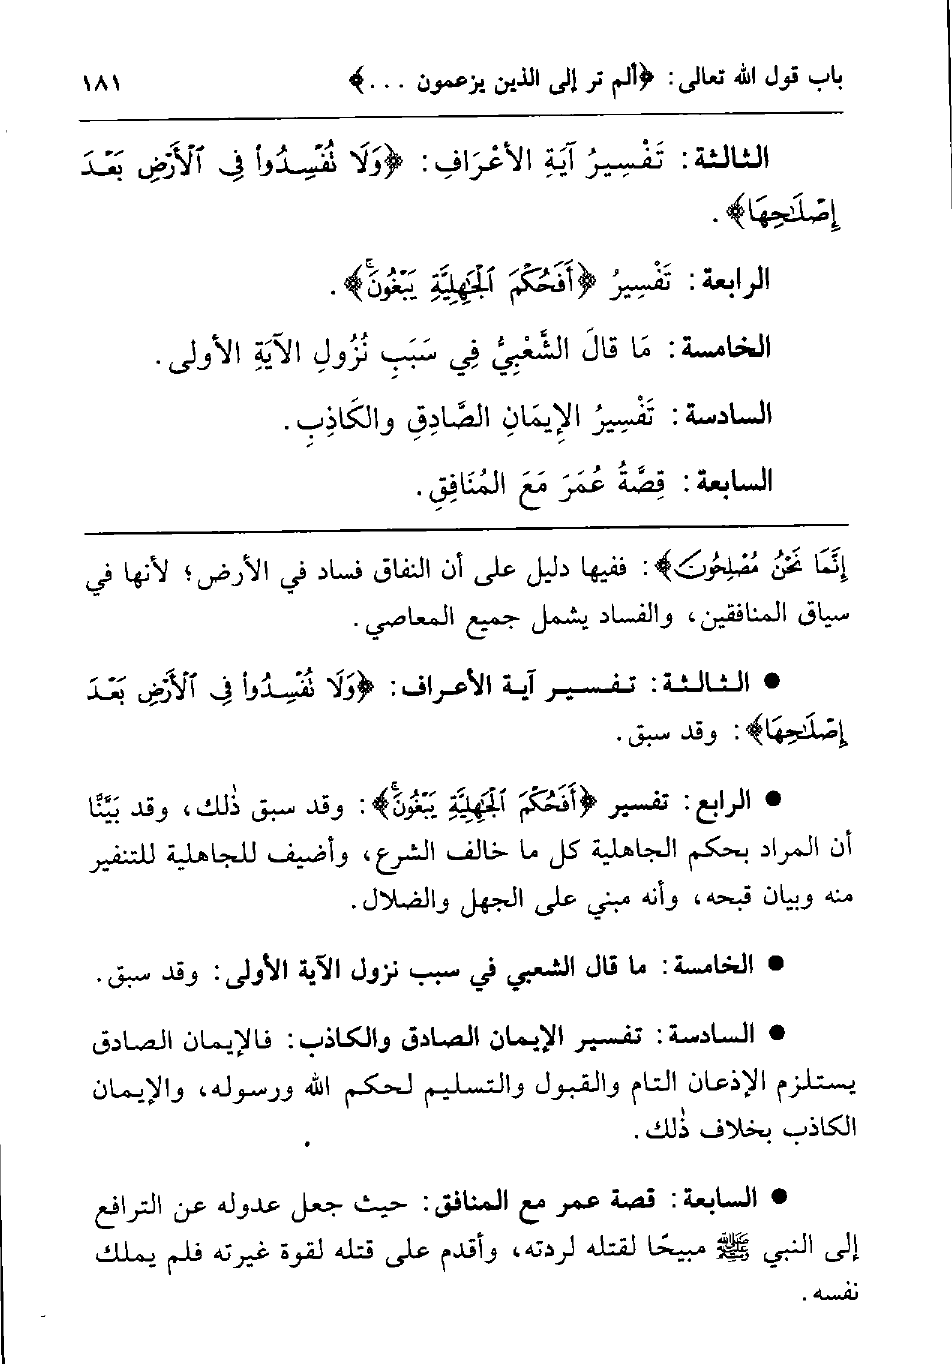 باب قول الله تعالى: ﴿ألم تر إلى الذين يزعمون ...﴾ ١٨١
الثالثة: تَفْسِيرُ آيَةِ الأَعْرَافِ: ﴿وَلَا نُفْسِدُواْ فِى ٱلْأَرْضِ بَعْدَ
إِصْلَٰحِهَا﴾.
الرابعة: تَفْسِيرُ ﴿أَفَحُكْمَ ٱلْجَٰهِلِيَّةِ يَبْغُونَۚ﴾.
الخامسة: مَا قَالَ الشَّعْبِيُّ فِي سَبَبِ نُزُولِ الآيَةِ الأولى.
السادسة: تَفْسِيرُ الإِيمَانِ الصَّادِقِ والكَاذِبِ.
السابعة: قِصَّةُ عُمَرَ مَعَ المُنَافِقِ.
إِنَّمَا نَحْنُ مُصْلِحُونَ﴾: ففيها دليل على أن النفاق فساد في الأرض؛ لأنها في
سياق المنافقين، والفساد يشمل جميع المعاصي.
● الثالثة: تفسير آية الأعراف: ﴿وَلَا نُفْسِدُواْ فِى ٱلْأَرْضِ بَعْدَ
إِصْلَٰحِهَا﴾: وقد سبق.
● الرابع: تفسير ﴿أَفَحُكْمَ ٱلْجَٰهِلِيَّةِ يَبْغُونَۚ﴾: وقد سبق ذٰلك، وقد بَيَّنَّا
أن المراد بحكم الجاهلية كل ما خالف الشرع، وأضيف للجاهلية للتنفير
منه وبيان قبحه، وأنه مبني على الجهل والضلال.
● الخامسة: ما قال الشعبي في سبب نزول الآية الأولى: وقد سبق.
● السادسة: تفسير الإيمان الصادق والكاذب: فالإيمان الصادق
يستلزم الإذعان التام والقبول والتسليم لحكم الله ورسوله، والإيمان
الكاذب بخلاف ذٰلك.
● السابعة: قصة عمر مع المنافق: حيث جعل عدوله عن الترافع
إلى النبي ﷺ مبيحًا لقتله لردته، وأقدم على قتله لقوة غيرته فلم يملك
نفسه.